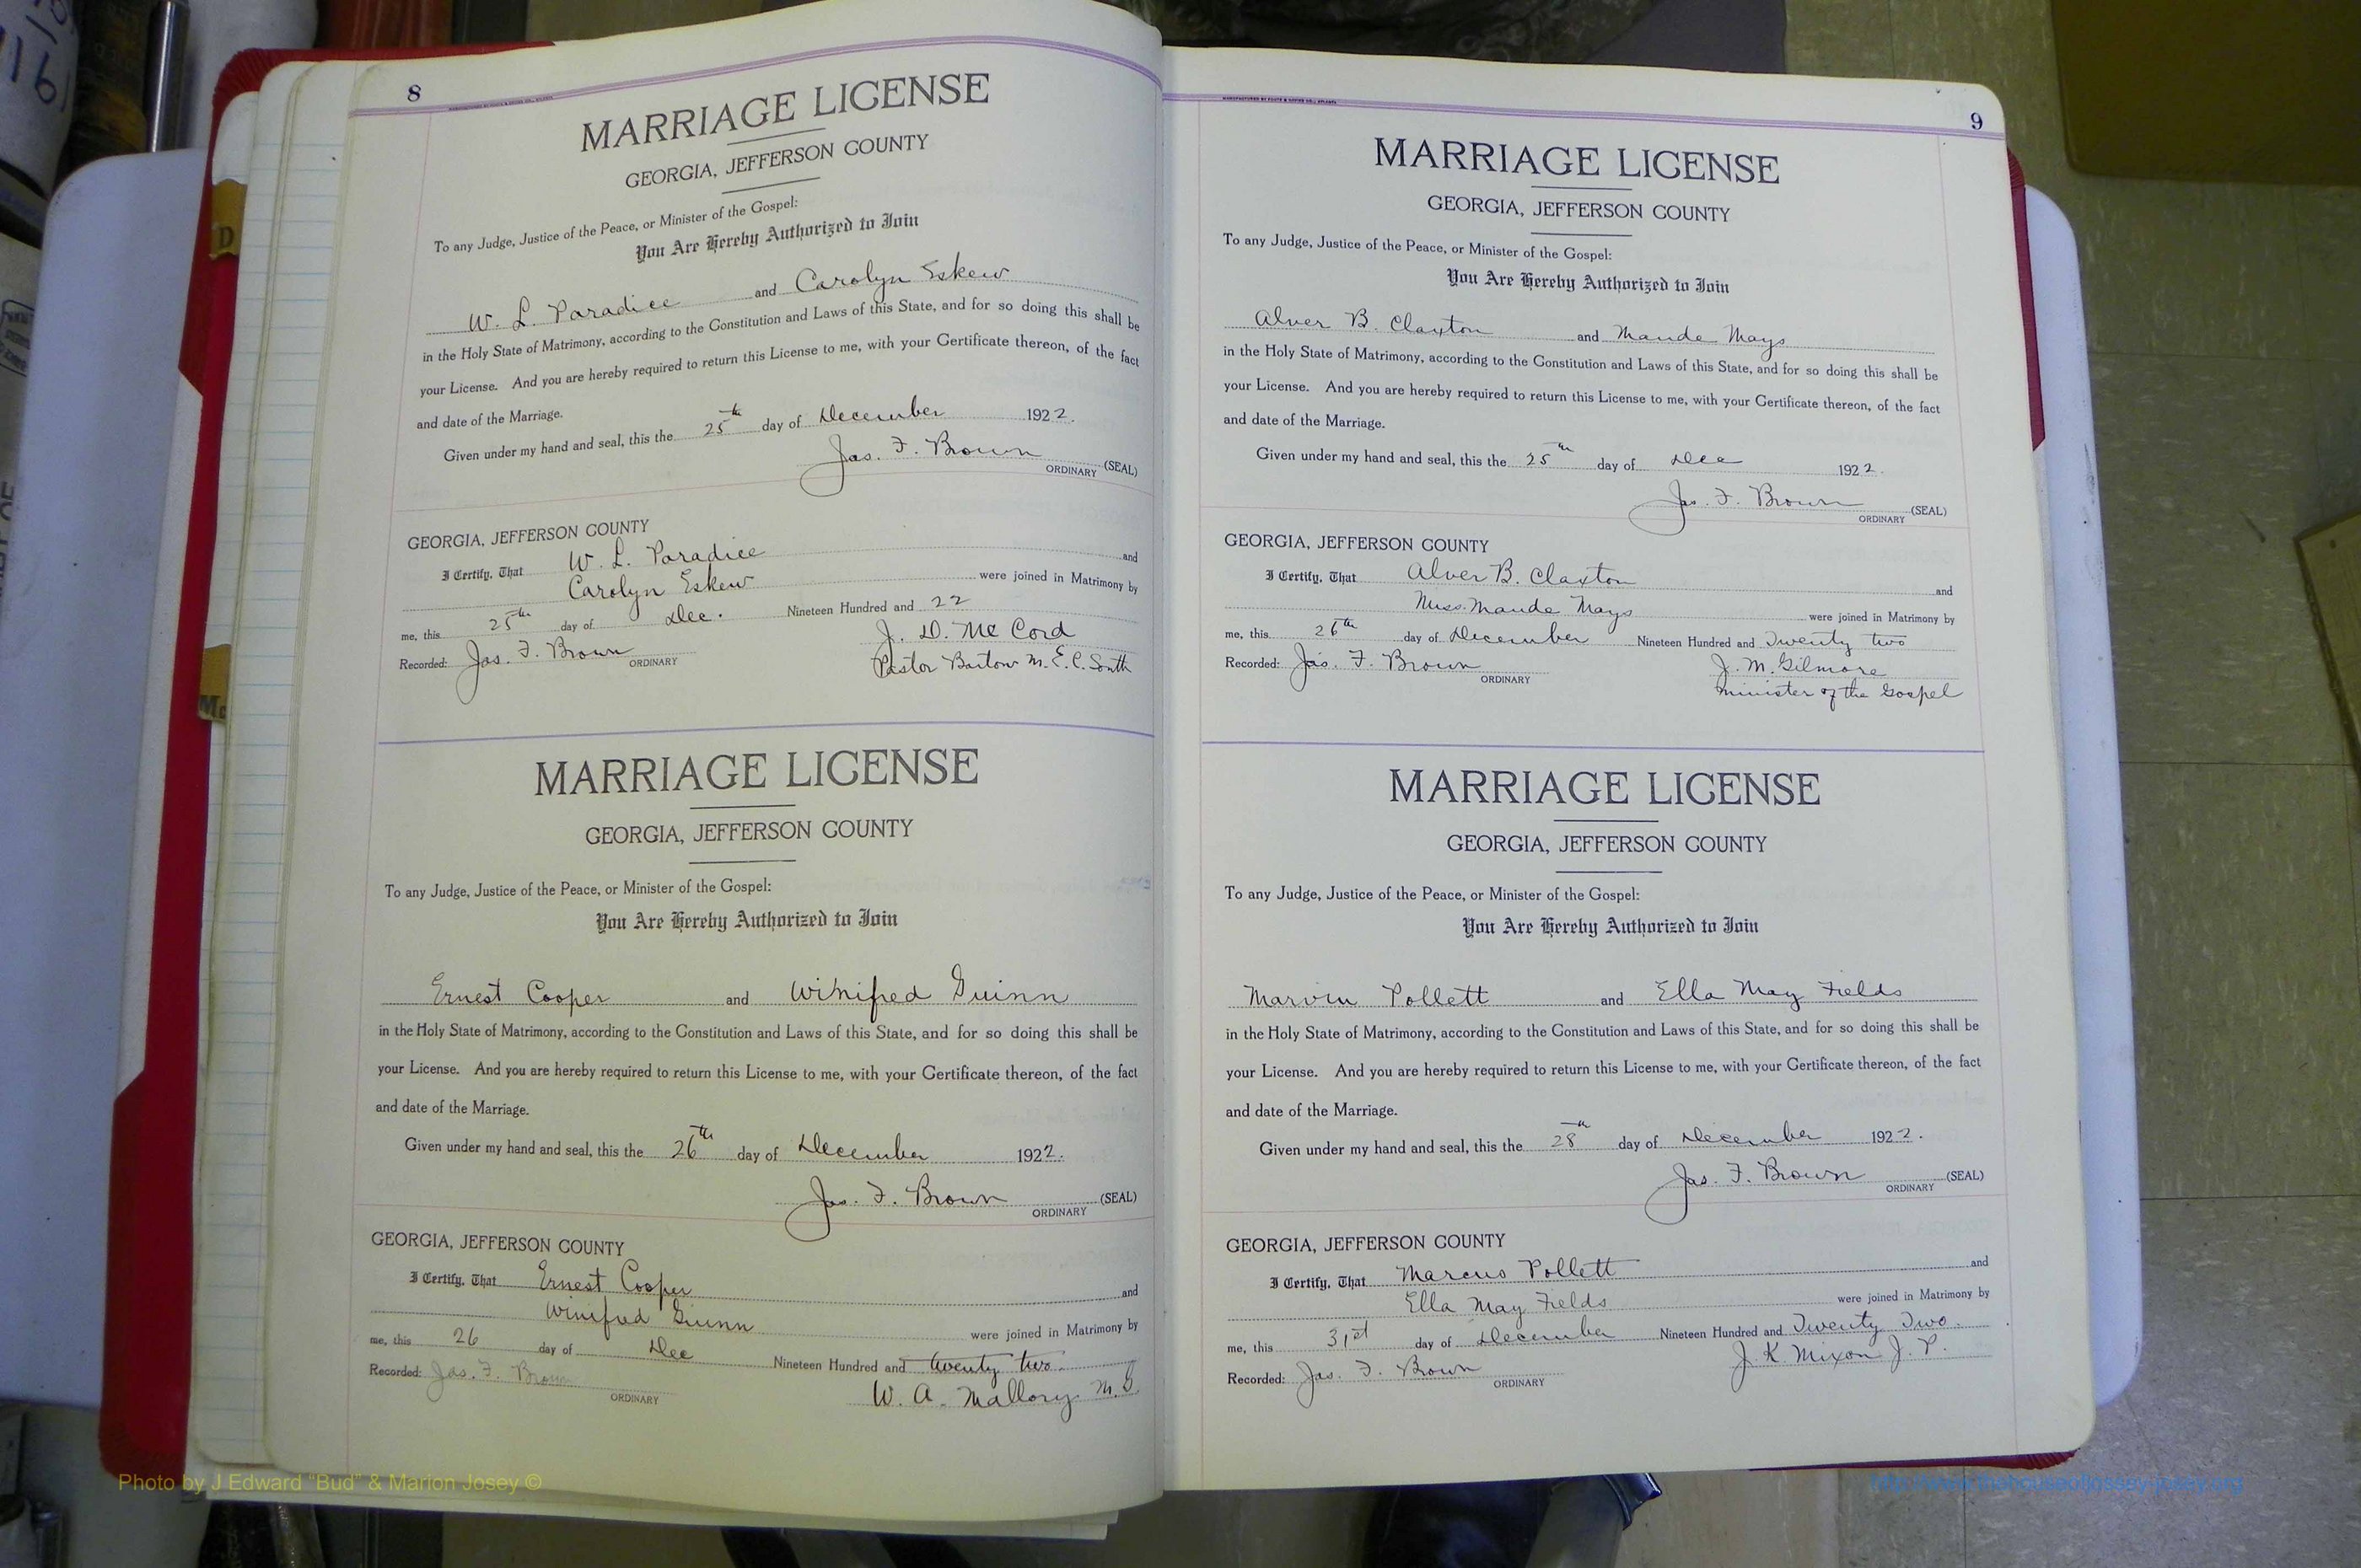 8
MARRIAGE LICENSE
GEORGIA, JEFFERSON COUNTY
To any Judge, Justice of the Peace, or Minister of the Gospel:
You Are Hereby Authorized to Join
W. L. Paradice and Carolyn Eskew
in the Holy State of Matrimony, according to the Constitution and Laws of this State, and for so doing this shall be
your License. And you are hereby required to return this License to me, with your Certificate thereon, of the fact
and date of the Marriage.
Given under my hand and seal, this the 25th day of December 1922.
Jas. F. Brown (SEAL)
ORDINARY
GEORGIA, JEFFERSON COUNTY
I Certify, That W. L. Paradice and
Carolyn Eskew were joined in Matrimony by
me, this 25th day of Dec. Nineteen Hundred and 22
J. D. McCord
Recorded: Jas. F. Brown ORDINARY
Pastor Bartow M. E. C. South
MARRIAGE LICENSE
GEORGIA, JEFFERSON COUNTY
To any Judge, Justice of the Peace, or Minister of the Gospel:
You Are Hereby Authorized to Join
Ernest Cooper and Winifred Guinn
in the Holy State of Matrimony, according to the Constitution and Laws of this State, and for so doing this shall be
your License. And you are hereby required to return this License to me, with your Certificate thereon, of the fact
and date of the Marriage.
Given under my hand and seal, this the 26th day of December 1922.
Jas. F. Brown (SEAL)
ORDINARY
GEORGIA, JEFFERSON COUNTY
I Certify, That Ernest Cooper and
Winifred Guinn were joined in Matrimony by
me, this 26 day of Dec Nineteen Hundred and twenty two
Recorded: Jas. F. Brown ORDINARY
W. A. Mallory M. G.
9
MARRIAGE LICENSE
GEORGIA, JEFFERSON COUNTY
To any Judge, Justice of the Peace, or Minister of the Gospel:
You Are Hereby Authorized to Join
Alver B. Claxton and Maude Mays
in the Holy State of Matrimony, according to the Constitution and Laws of this State, and for so doing this shall be
your License. And you are hereby required to return this License to me, with your Certificate thereon, of the fact
and date of the Marriage.
Given under my hand and seal, this the 25th day of Dec 1922.
Jas. F. Brown (SEAL)
ORDINARY
GEORGIA, JEFFERSON COUNTY
I Certify, That Alver B. Claxton and
Miss. Maude Mays were joined in Matrimony by
me, this 26th day of December Nineteen Hundred and Twenty two
Recorded: Jas. F. Brown ORDINARY
J. M. Gilmore
minister of the Gospel
MARRIAGE LICENSE
GEORGIA, JEFFERSON COUNTY
To any Judge, Justice of the Peace, or Minister of the Gospel:
You Are Hereby Authorized to Join
Marvin Pollett and Ella May Fields
in the Holy State of Matrimony, according to the Constitution and Laws of this State, and for so doing this shall be
your License. And you are hereby required to return this License to me, with your Certificate thereon, of the fact
and date of the Marriage.
Given under my hand and seal, this the 28th day of December 1922.
Jas. F. Brown (SEAL)
ORDINARY
GEORGIA, JEFFERSON COUNTY
I Certify, That Marcus Pollett and
Ella May Fields were joined in Matrimony by
me, this 31st day of December Nineteen Hundred and Twenty Two.
Recorded: Jas. F. Brown ORDINARY
J. K. Mixon J. P.
Photo by J Edward "Bud" & Marion Josey ©